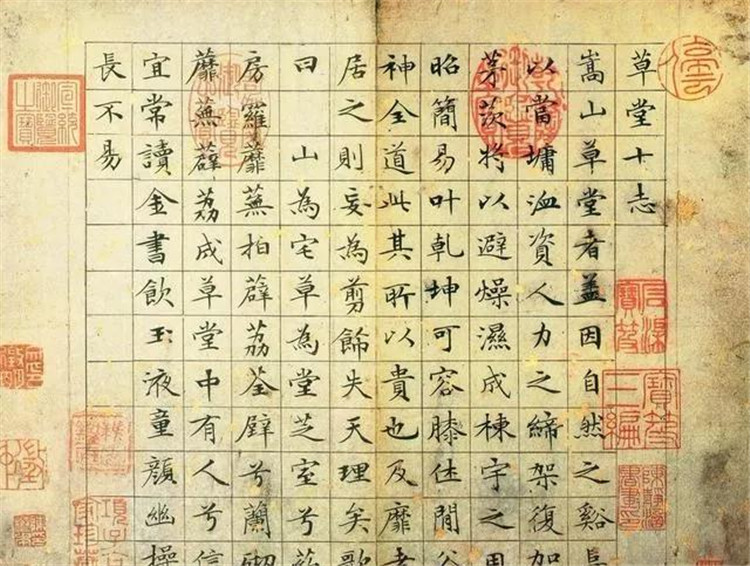 草堂十志
嵩山草堂者盖因自然之谿阜
以當墉洫資人力之締架復加
茅茨將以避燥濕成棟宇之用
昭簡易叶乾坤可容膝休閒谷
神全道此其所以貴也及靡者
居之則妄為剪飾失天理矣歌
曰 山為宅草為堂芝室兮葯
房羅蘼蕪拍薜荔荃壁兮蘭砌
蘼蕪薜荔成草堂中有人兮信
宜常讀金書飲玉液童顏幽操
長不易
石渠寶笈
寶笈三編
宣統御覽之寶